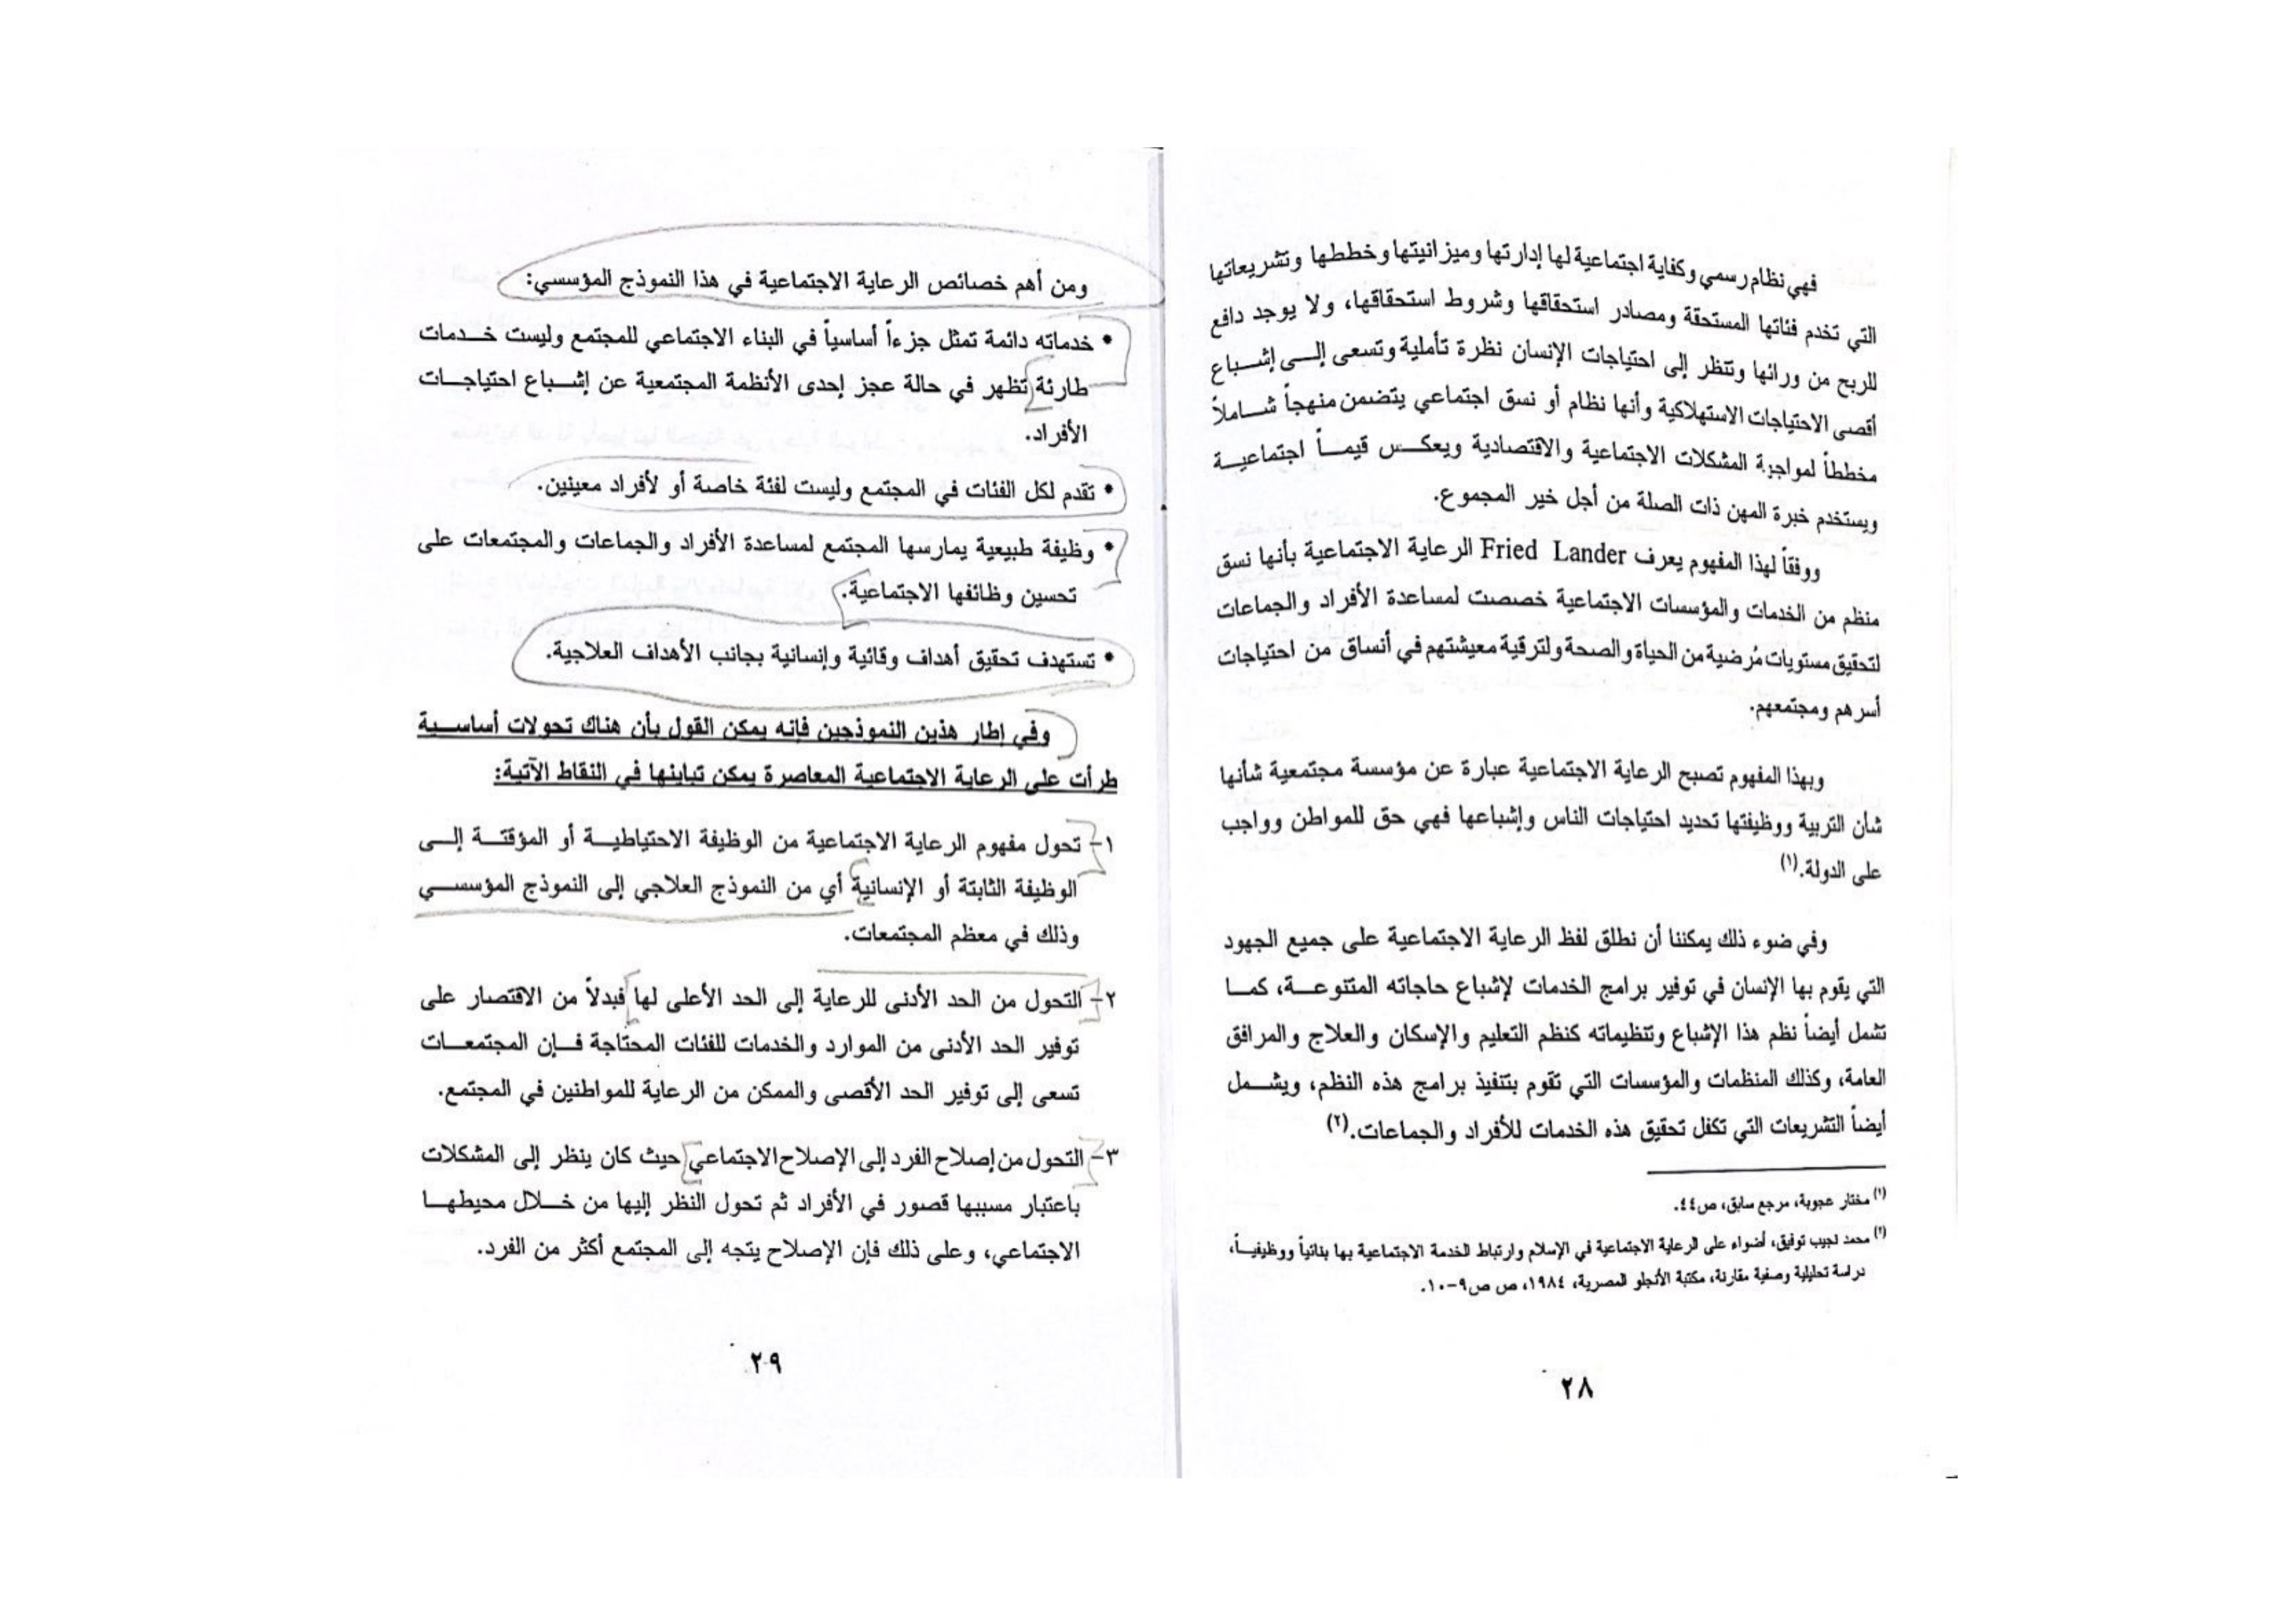 فهي نظام رسمي وكفاية اجتماعية لها إدارتها وميزانيتها وخططها وتشريعاتها
التي تخدم فئاتها المستحقة ومصادر استحقاقها وشروط استحقاقها، ولا يوجد دافع
للربح من ورائها وتنظر إلى احتياجات الإنسان نظرة تأملية وتسعى إلى إشباع
أقصى الاحتياجات الاستهلاكية وأنها نظام أو نسق اجتماعي يتضمن منهجاً شاملاً
مخططاً لمواجهة المشكلات الاجتماعية والاقتصادية ويعكس قيماً اجتماعية
ويستخدم خبرة المهن ذات الصلة من أجل خير المجموع.
ووفقاً لهذا المفهوم يعرف Fried Lander الرعاية الاجتماعية بأنها نسق
منظم من الخدمات والمؤسسات الاجتماعية خصصت لمساعدة الأفراد والجماعات
لتحقيق مستويات مُرضية من الحياة والصحة ولترقية معيشتهم في أنساق من احتياجات
أسرهم ومجتمعهم.
وبهذا المفهوم تصبح الرعاية الاجتماعية عبارة عن مؤسسة مجتمعية شأنها
شأن التربية ووظيفتها تحديد احتياجات الناس وإشباعها فهي حق للمواطن وواجب
على الدولة.(١)
وفي ضوء ذلك يمكننا أن نطلق لفظ الرعاية الاجتماعية على جميع الجهود
التي يقوم بها الإنسان في توفير برامج الخدمات لإشباع حاجاته المتنوعة، كما
تشمل أيضاً نظم هذا الإشباع وتنظيماته كنظم التعليم والإسكان والعلاج والمرافق
العامة، وكذلك المنظمات والمؤسسات التي تقوم بتنفيذ برامج هذه النظم، ويشمل
أيضاً التشريعات التي تكفل تحقيق هذه الخدمات للأفراد والجماعات.(٢)
(١) مختار عجوبة، مرجع سابق، ص٤٤.
(٢) محمد نجيب توفيق، أضواء على الرعاية الاجتماعية في الإسلام وارتباط الخدمة الاجتماعية بها بنائياً ووظيفياً،
دراسة تحليلية وصفية مقارنة، مكتبة الأنجلو المصرية، ١٩٨٤، ص ص٩-١٠.
٢٨
ومن أهم خصائص الرعاية الاجتماعية في هذا النموذج المؤسسي:
• خدماته دائمة تمثل جزءاً أساسياً في البناء الاجتماعي للمجتمع وليست خدمات
طارئة تظهر في حالة عجز إحدى الأنظمة المجتمعية عن إشباع احتياجات
الأفراد.
• تقدم لكل الفئات في المجتمع وليست لفئة خاصة أو لأفراد معينين.
• وظيفة طبيعية يمارسها المجتمع لمساعدة الأفراد والجماعات والمجتمعات على
تحسين وظائفها الاجتماعية.
• تستهدف تحقيق أهداف وقائية وإنسانية بجانب الأهداف العلاجية.
وفي إطار هذين النموذجين فإنه يمكن القول بأن هناك تحولات أساسية
طرأت على الرعاية الاجتماعية المعاصرة يمكن تباينها في النقاط الآتية:
١- تحول مفهوم الرعاية الاجتماعية من الوظيفة الاحتياطية أو المؤقتة إلى
الوظيفة الثابتة أو الإنسانية أي من النموذج العلاجي إلى النموذج المؤسسي
وذلك في معظم المجتمعات.
٢- التحول من الحد الأدنى للرعاية إلى الحد الأعلى لها فبدلاً من الاقتصار على
توفير الحد الأدنى من الموارد والخدمات للفئات المحتاجة فإن المجتمعات
تسعى إلى توفير الحد الأقصى والممكن من الرعاية للمواطنين في المجتمع.
٣- التحول من إصلاح الفرد إلى الإصلاح الاجتماعي حيث كان ينظر إلى المشكلات
باعتبار مسببها قصور في الأفراد ثم تحول النظر إليها من خلال محيطها
الاجتماعي، وعلى ذلك فإن الإصلاح يتجه إلى المجتمع أكثر من الفرد.
٢٩